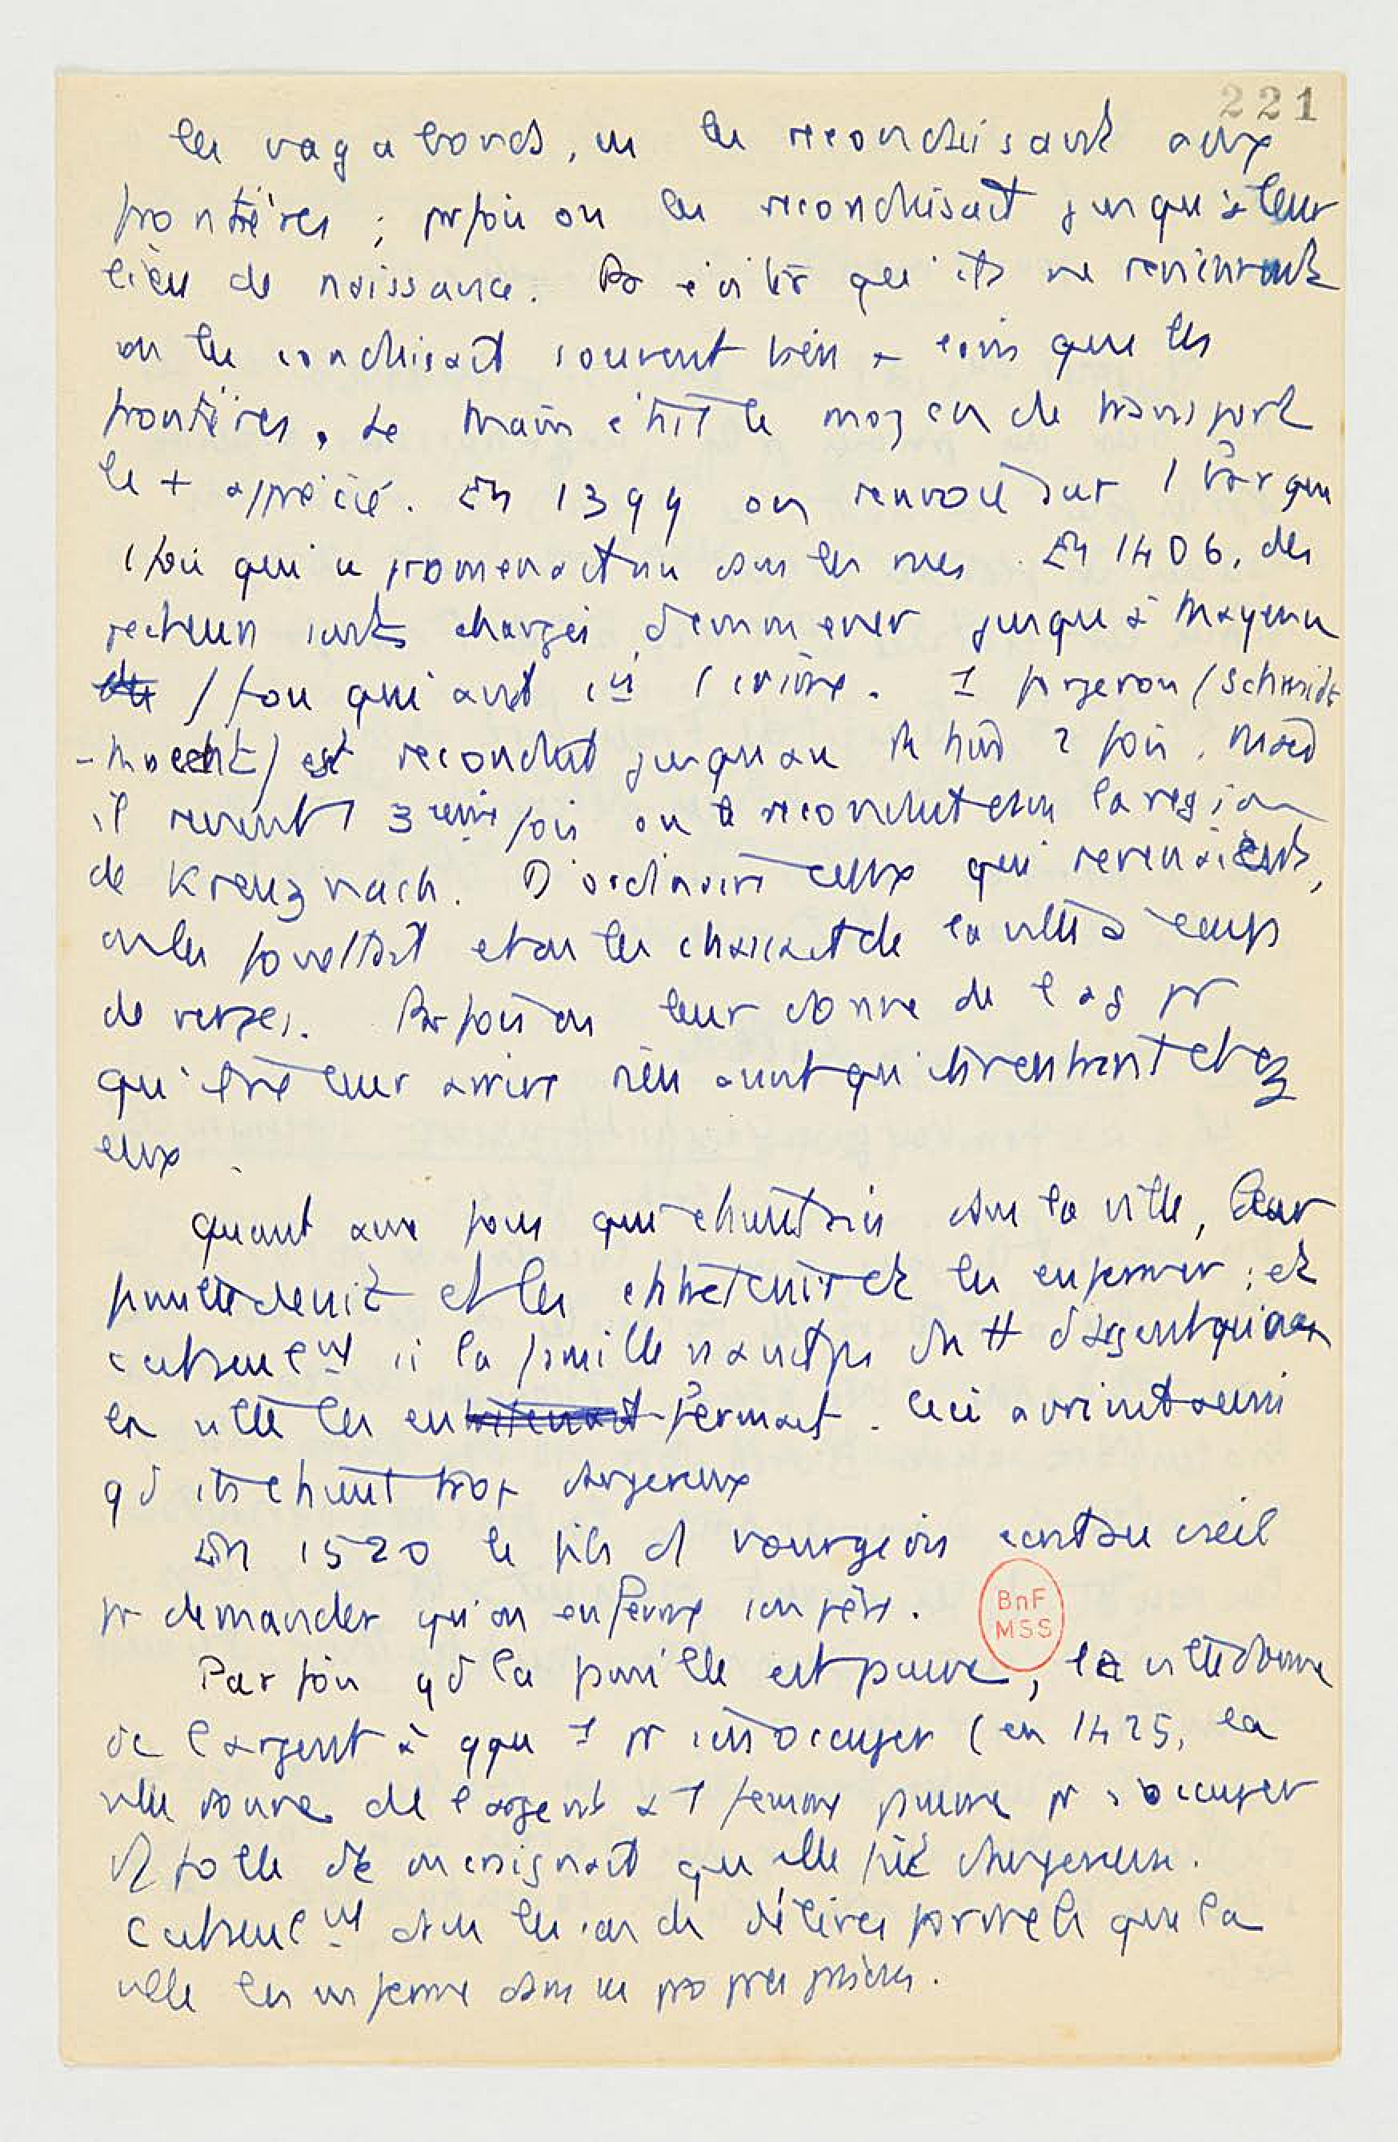 221
les vagabonds, en les reconduisant aux
frontières ; parfois on les reconduisait jusqu'à leur
lieu de naissance. Pr éviter qu'ils ne reviennent
on les conduisait souvent bien + loin que les
frontières. Le Main était le moyen de transport
le + apprécié. En 1399 on renvoie sur 1 barque
1 fou qui se promenait nu dans les rues. En 1406, des
sont chargés d'emmener jusqu'à Mayence
1 fou qui avait 1 crime. 1 forgeron (Schmidt
-knecht) est reconduit jusqu'au Rhin 2 fois. Mais
il revient 1 3eme fois on le reconduit dans la region
de Kreuznach. D'ordinaire ceux qui revenaient,
on les fouettait et on les chassait de la ville à coups
de verges. Parfois on leur donne de l'arg pr
qu'il ne leur arrive rien avant qu'ils rentrent chez
eux.
Quant aux fous qui étaient nés dans la ville, leur
famille devait et les entretenir et les enfermer ; et
c'est seulement si la famille n'avait pas d'argent que
la ville les enfermait. Ceci arrivait aussi
qd ils étaient trop dangereux
En 1520 le fils d'1 bourgeois conseil
pr demander qu'on enferme son père.
BnF
MSS
Parfois qd la famille est pauvre, la ville donne
de l'argent à qqu'1 pr s'en occuper (en 1425, la
ville donne de l'argent à 1 femme pauvre pr s'occuper
d'1 folle dt on craignait qu'elle fût dangereuse.
C'est seulement dans les cas de délires formels que la
ville les enferme dans ses propres prisons.